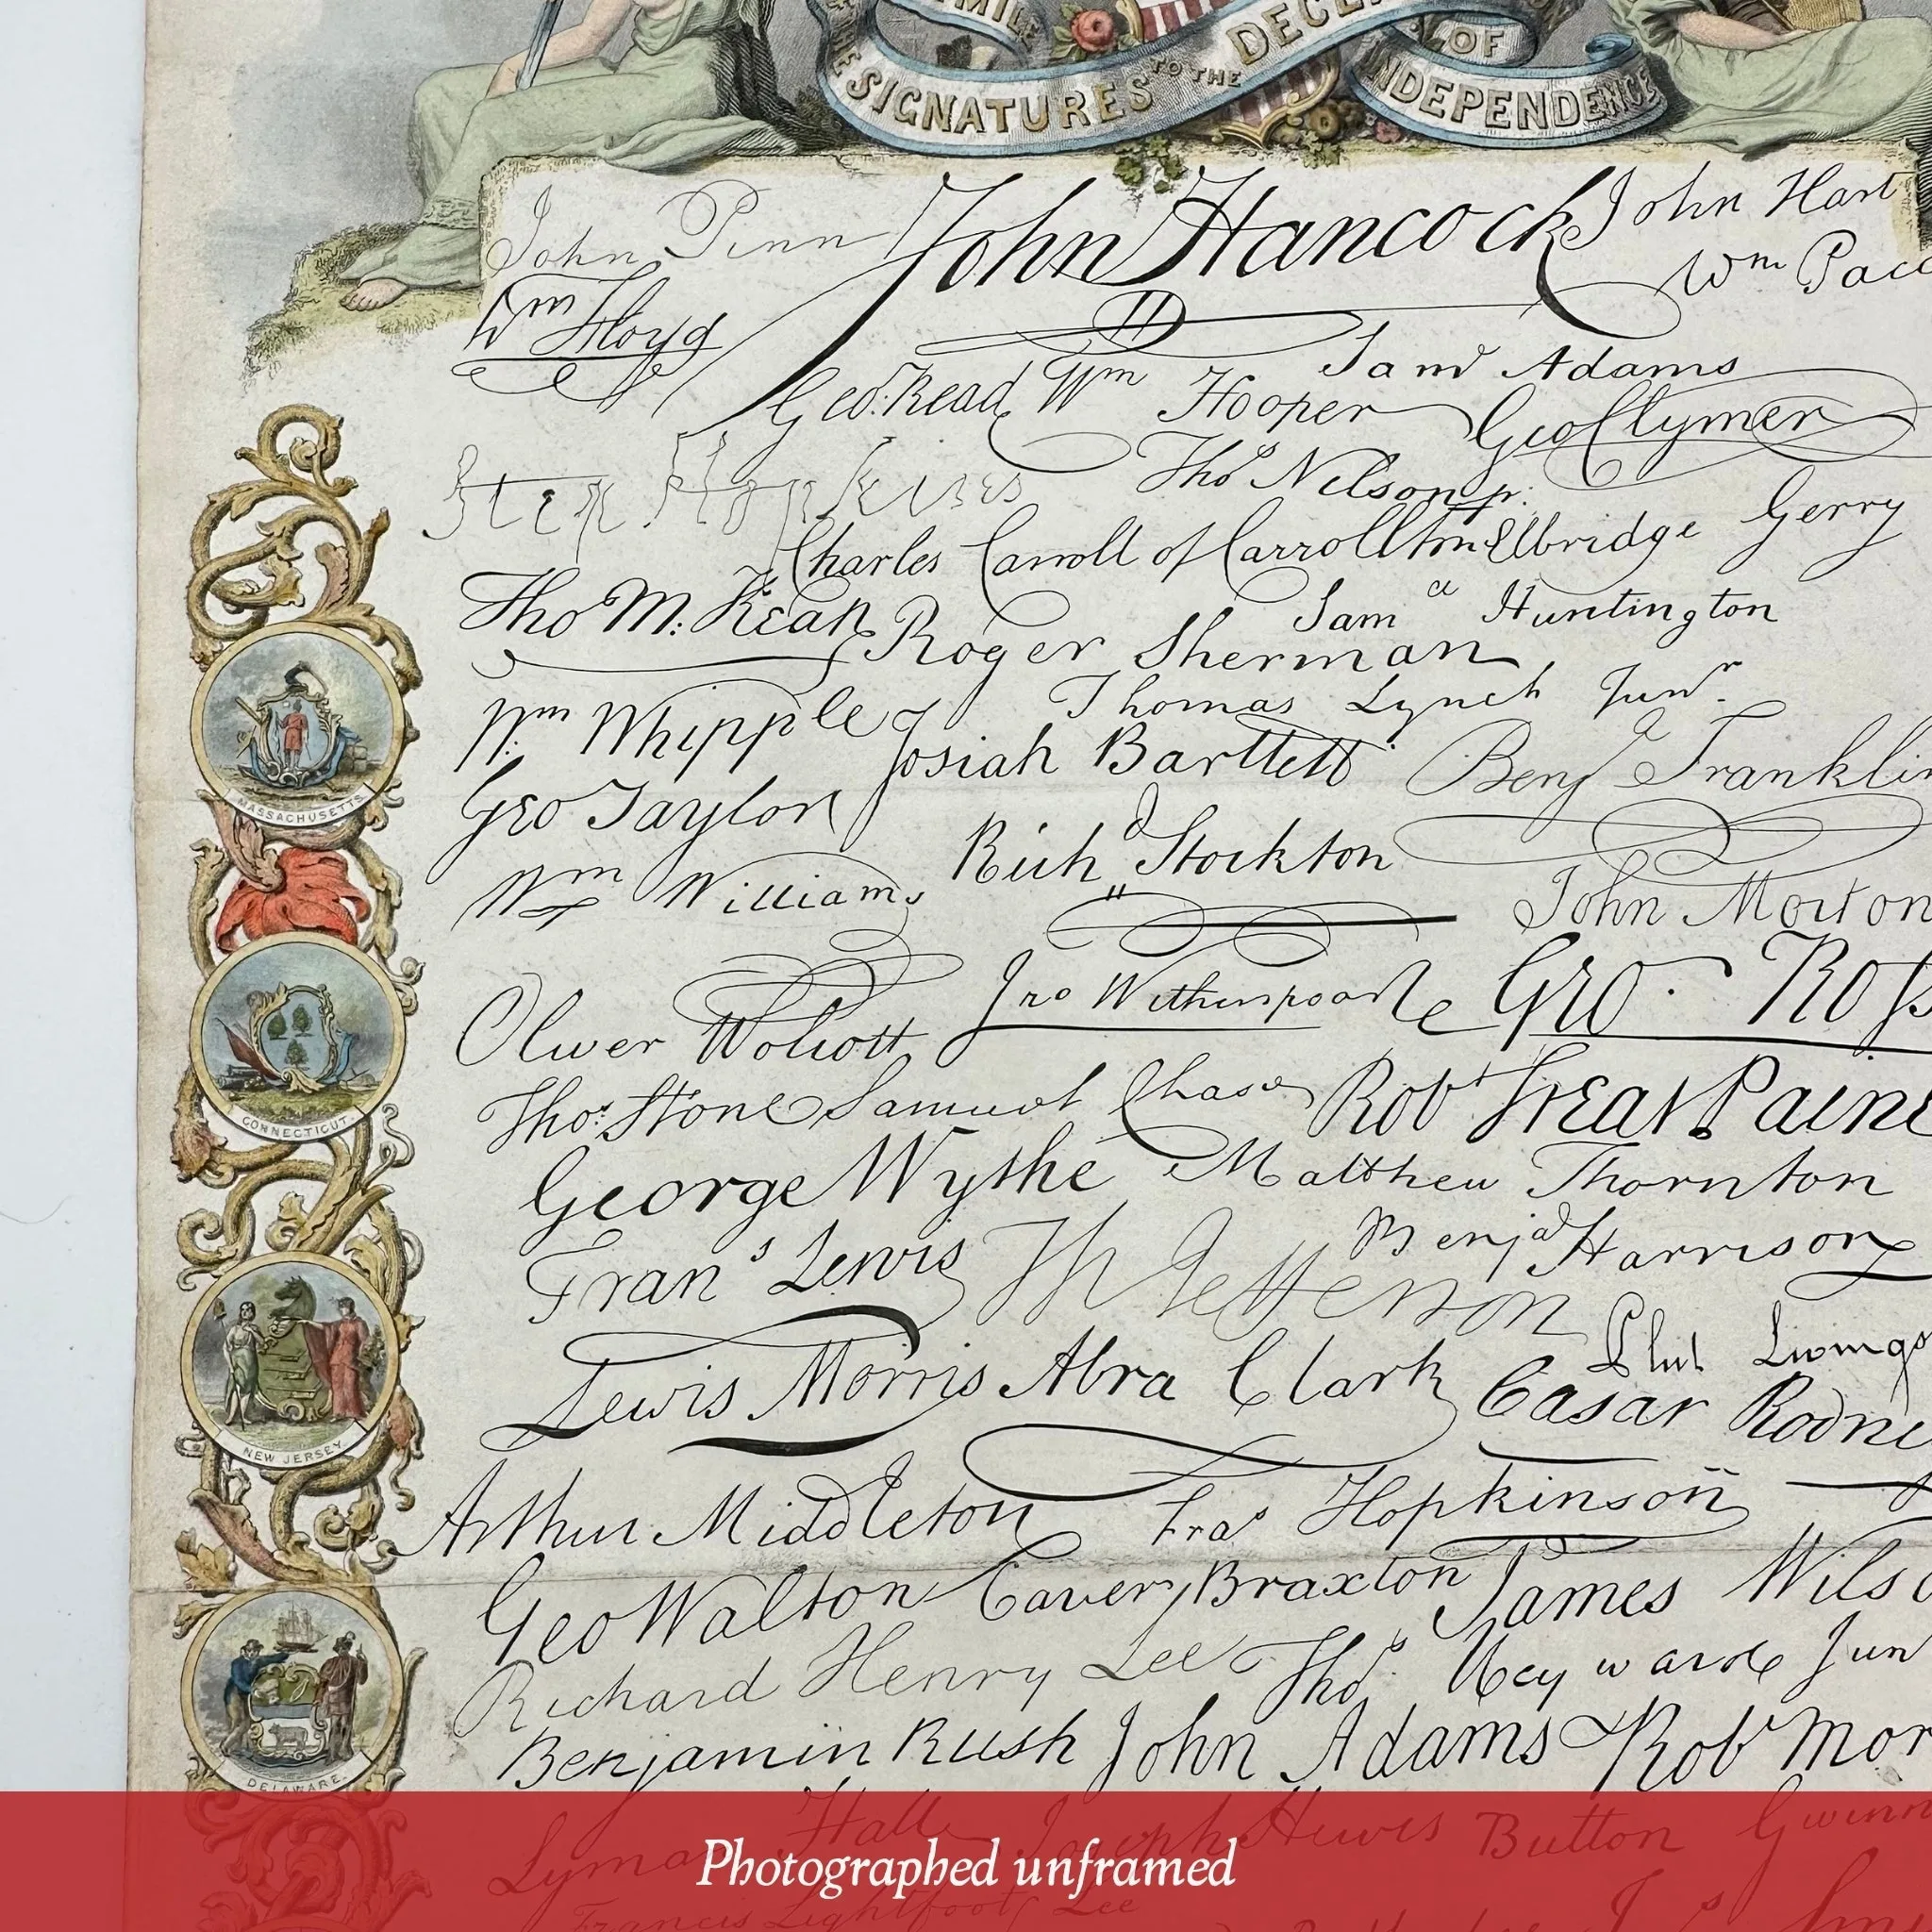 SIGNATURES TO THE DECL
OF
INDEPENDENCE
John Penn John Hancock John Hart
Wm Floyd Wm Pac
Geo. Read Wm Hooper Saml Adams
Geo Clymer
Step Hopkins Thos Nelson jr. Elbridge Gerry
Charles Carroll of Carrollton
Tho M: Kean Roger Sherman Saml Huntington
Wm Whipple Thomas Lynch Junr.
Josiah Bartlett Benj Franklin
MASSACHUSETTS
Geo Taylor Richd Stockton
Wm Williams John Morton
Oliver Wolcott Jno Witherspoon Geo. Ross
Thos. Stone Samuel Chase Robt Treat Paine
CONNECTICUT
George Wythe Matthew Thornton
Frans Lewis Th Jefferson Benja Harrison
Phil Livings
Lewis Morris Abra Clark Cæsar Rodne
NEW JERSEY
Arthur Middleton Fras Hopkinson
Geo Walton Carter Braxton James Wils
Richard Henry Lee Thos Heyward Jun
Benjamin Rush John Adams Robt Mor
DELAWARE.
Lyman Hall Joseph Hewes Button Gwinn
Photographed unframed
Francis Lightfoot Lee